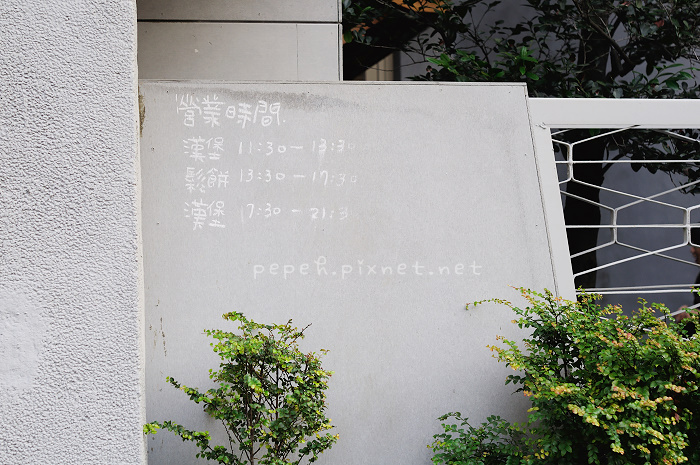 營業時間
漢堡 11:30-13:30
鬆餅 13:30-17:30
漢堡 17:30-21:30
pepeh.pixnet.net